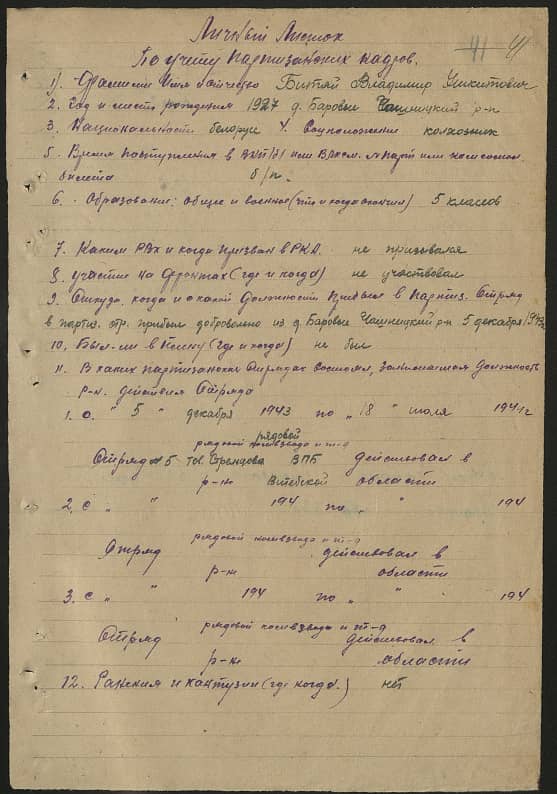 Личный Листок
41
По учёту партизанских кадров.
1). Фамилия Имя Отчество Битяй Владимир Никитович
2. Год и место рождения 1927 д. Баровые Чашницкий р-н
3. Национальность белорус 4. Соцположение колхозник
5. Время поступления в ВКП/б/ или ВЛКСМ. № парт или комсомол.
билета б/п.
6. Образование: общее и военное (что и когда окончил) 5 классов
7. Каким РВК и когда призван в РКА. не призывался
8. Участие на Фронтах (где и когда) не участвовал
9. Откуда, когда и о какой Должности прибыл в Партиз. Отряд
в партиз. отр. прибыл добровольно из д. Баровые Чашницкий р-н 5 декабря 1943г
10. Был-ли в плену (где и когда) не был
11. В каких партизанских Отрядах состоял, занимаемая должность
р-н. действия Отряда
1. С. " 5 " декабря 1943 по " 18 " июля 194
рядовой
рядовой комвзвода и т-д
Отряд № 5 тов. ВПБ действовал в
р-не Витебской области
2. С " " 194 по " " 194
рядовой комвзвода и т-д
Отряд действовал в
р-не области
3. С " " 194 по " " 194
рядовой комвзвода и т-д
Отряд действовал в
р-не области
12. Ранения и контузии (где когда.) нет